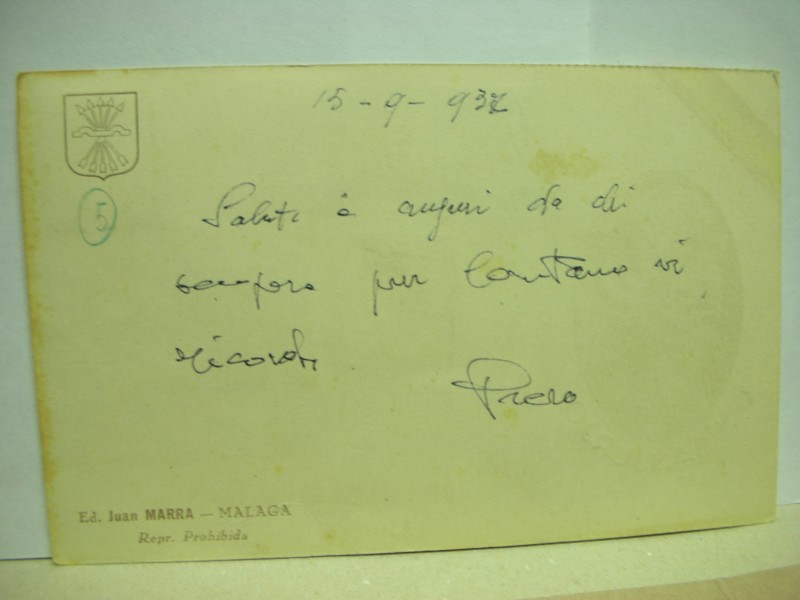 15-9-937
5
Saluti e auguri da chi
sempre pur lontano vi
ricorda
Piero
Ed. Juan MARRA — MALAGA
Repr. Prohibida